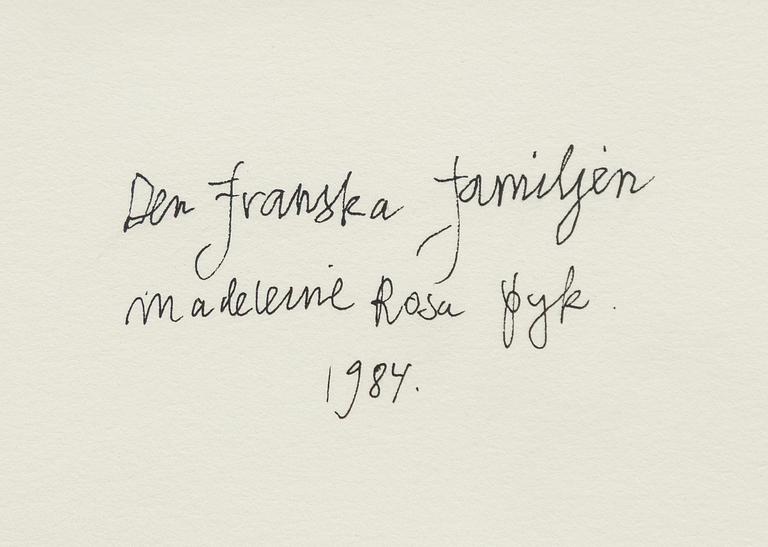 Den franska familjen
madeleine Rosa pyk.
1984.